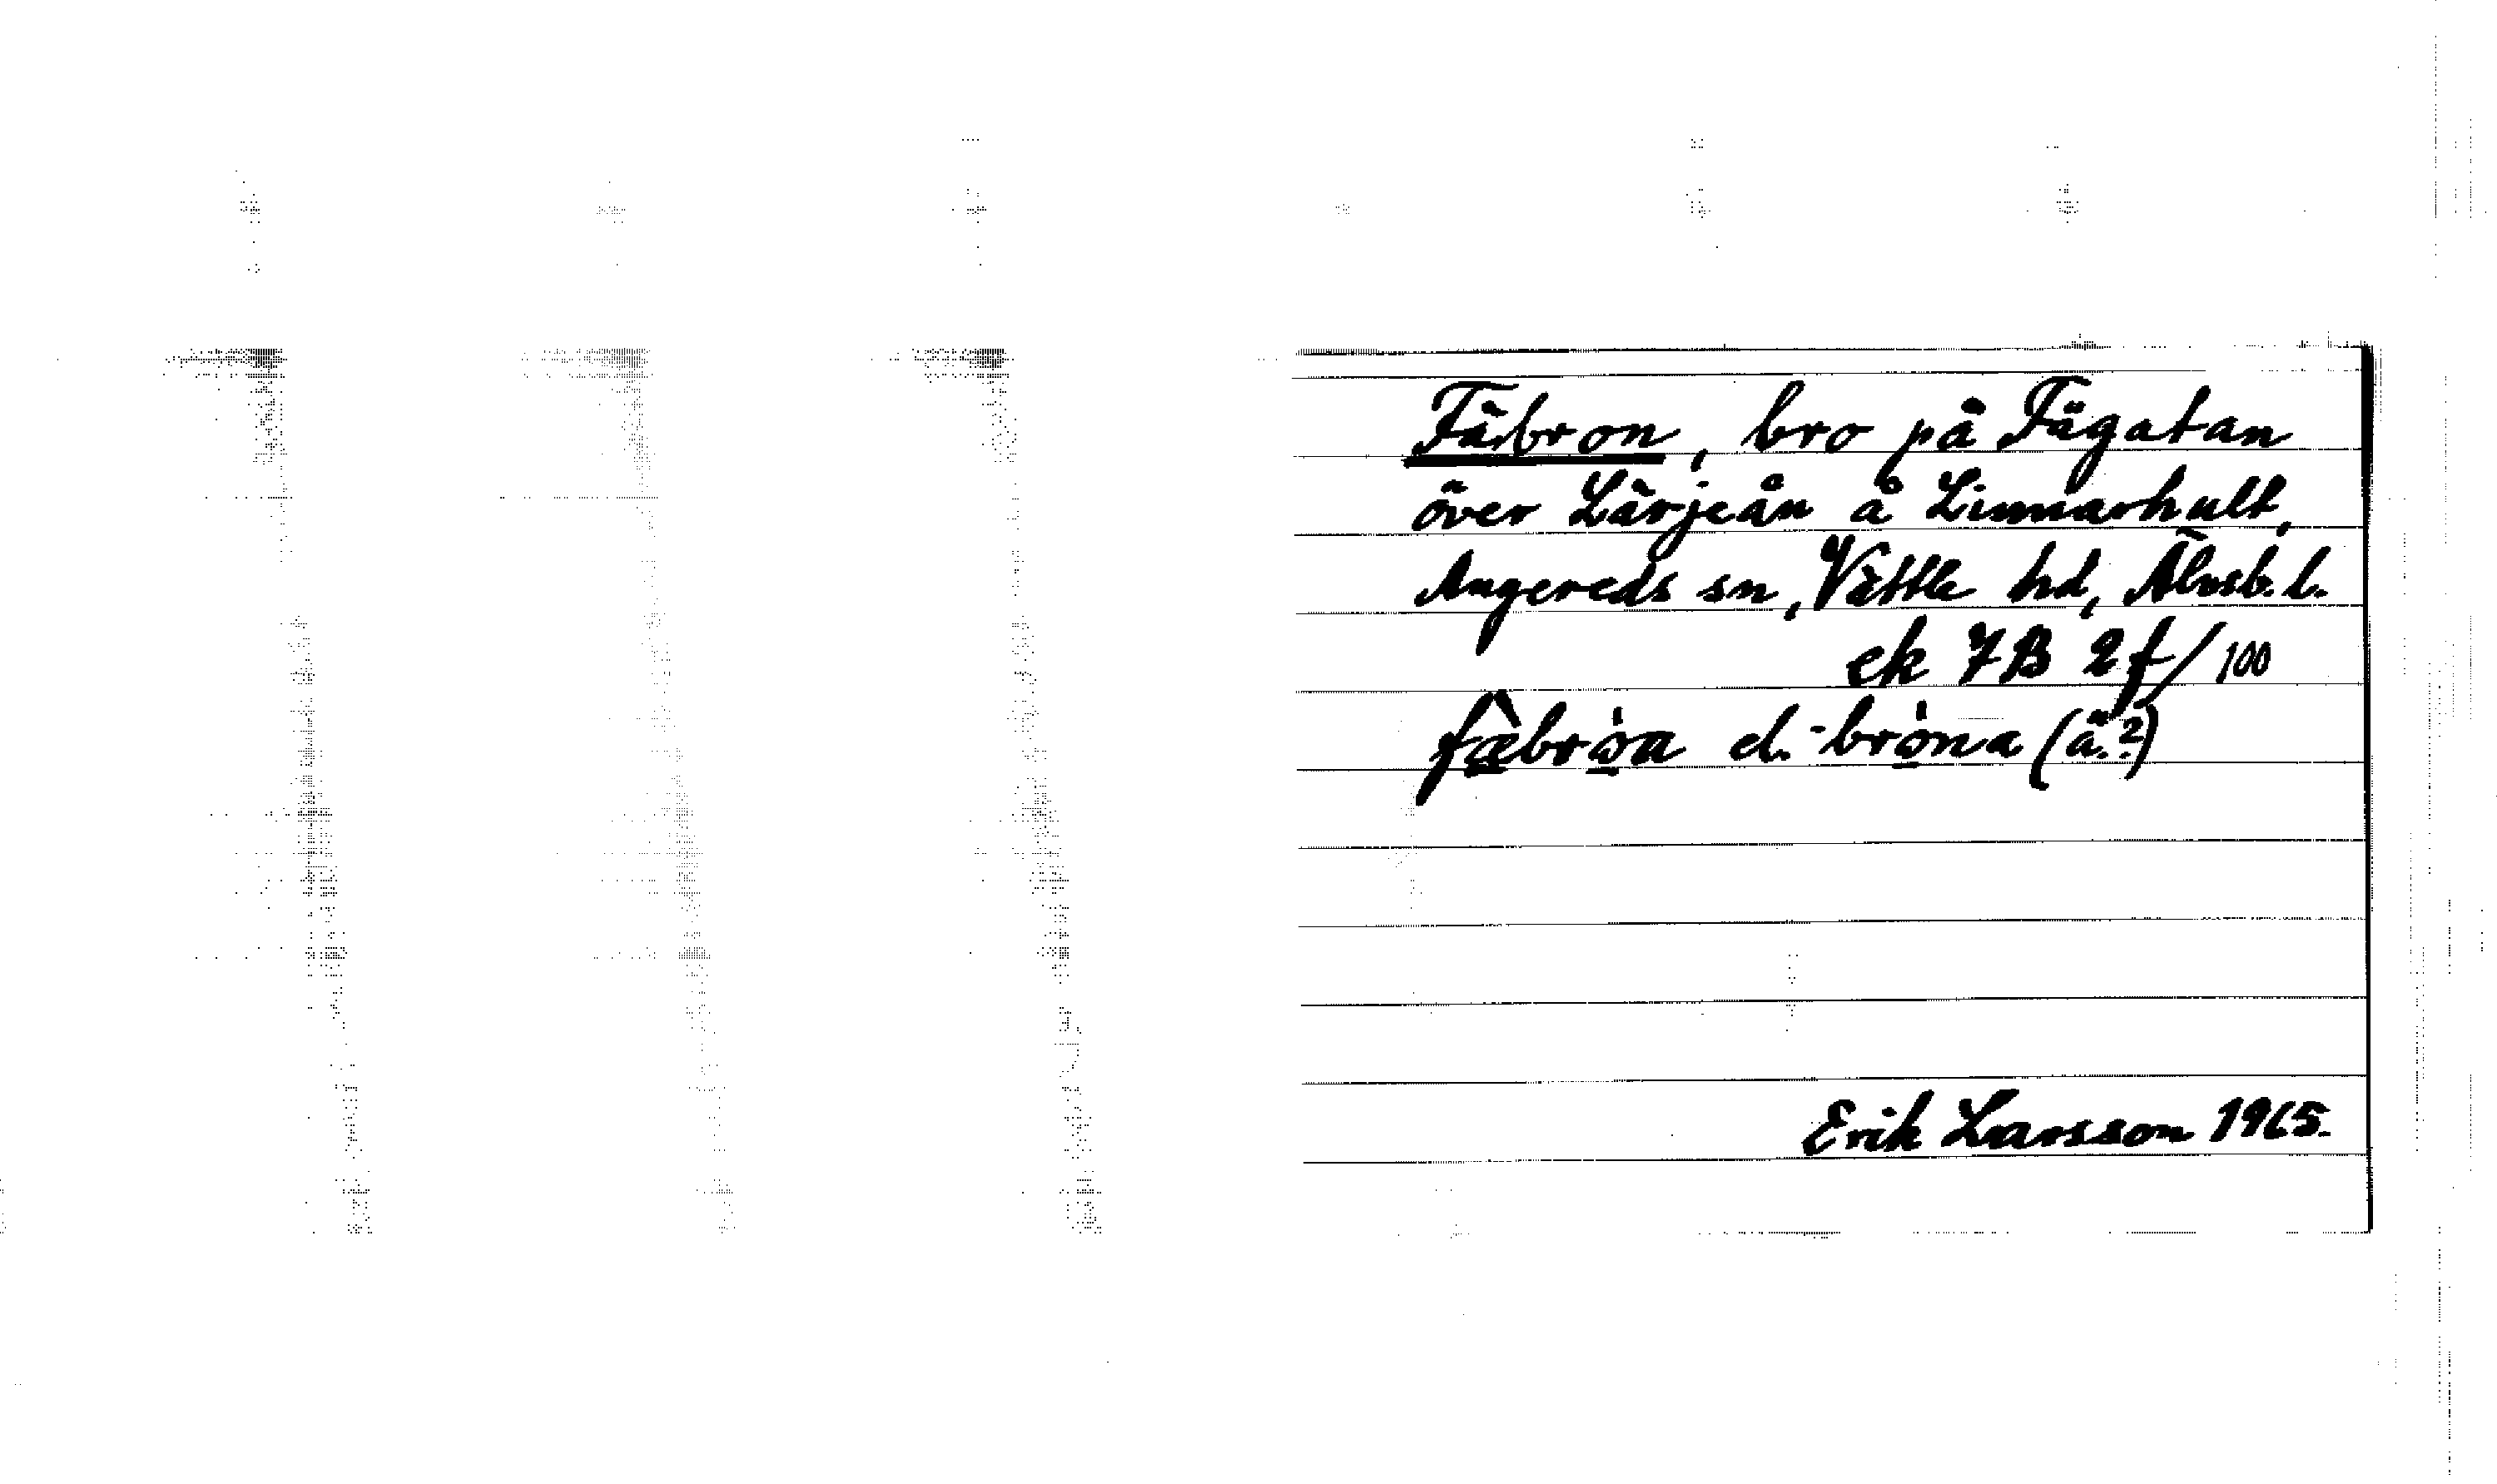 Fäbron, bro på Fägatan
över Lärjeån å Linnarhult,
Angereds sn, Vättle hd, Älvsb. l.
ek 7B 2f/100
fæ̀bròa el. -bròna (ä.?)
Erik Larsson 1965.